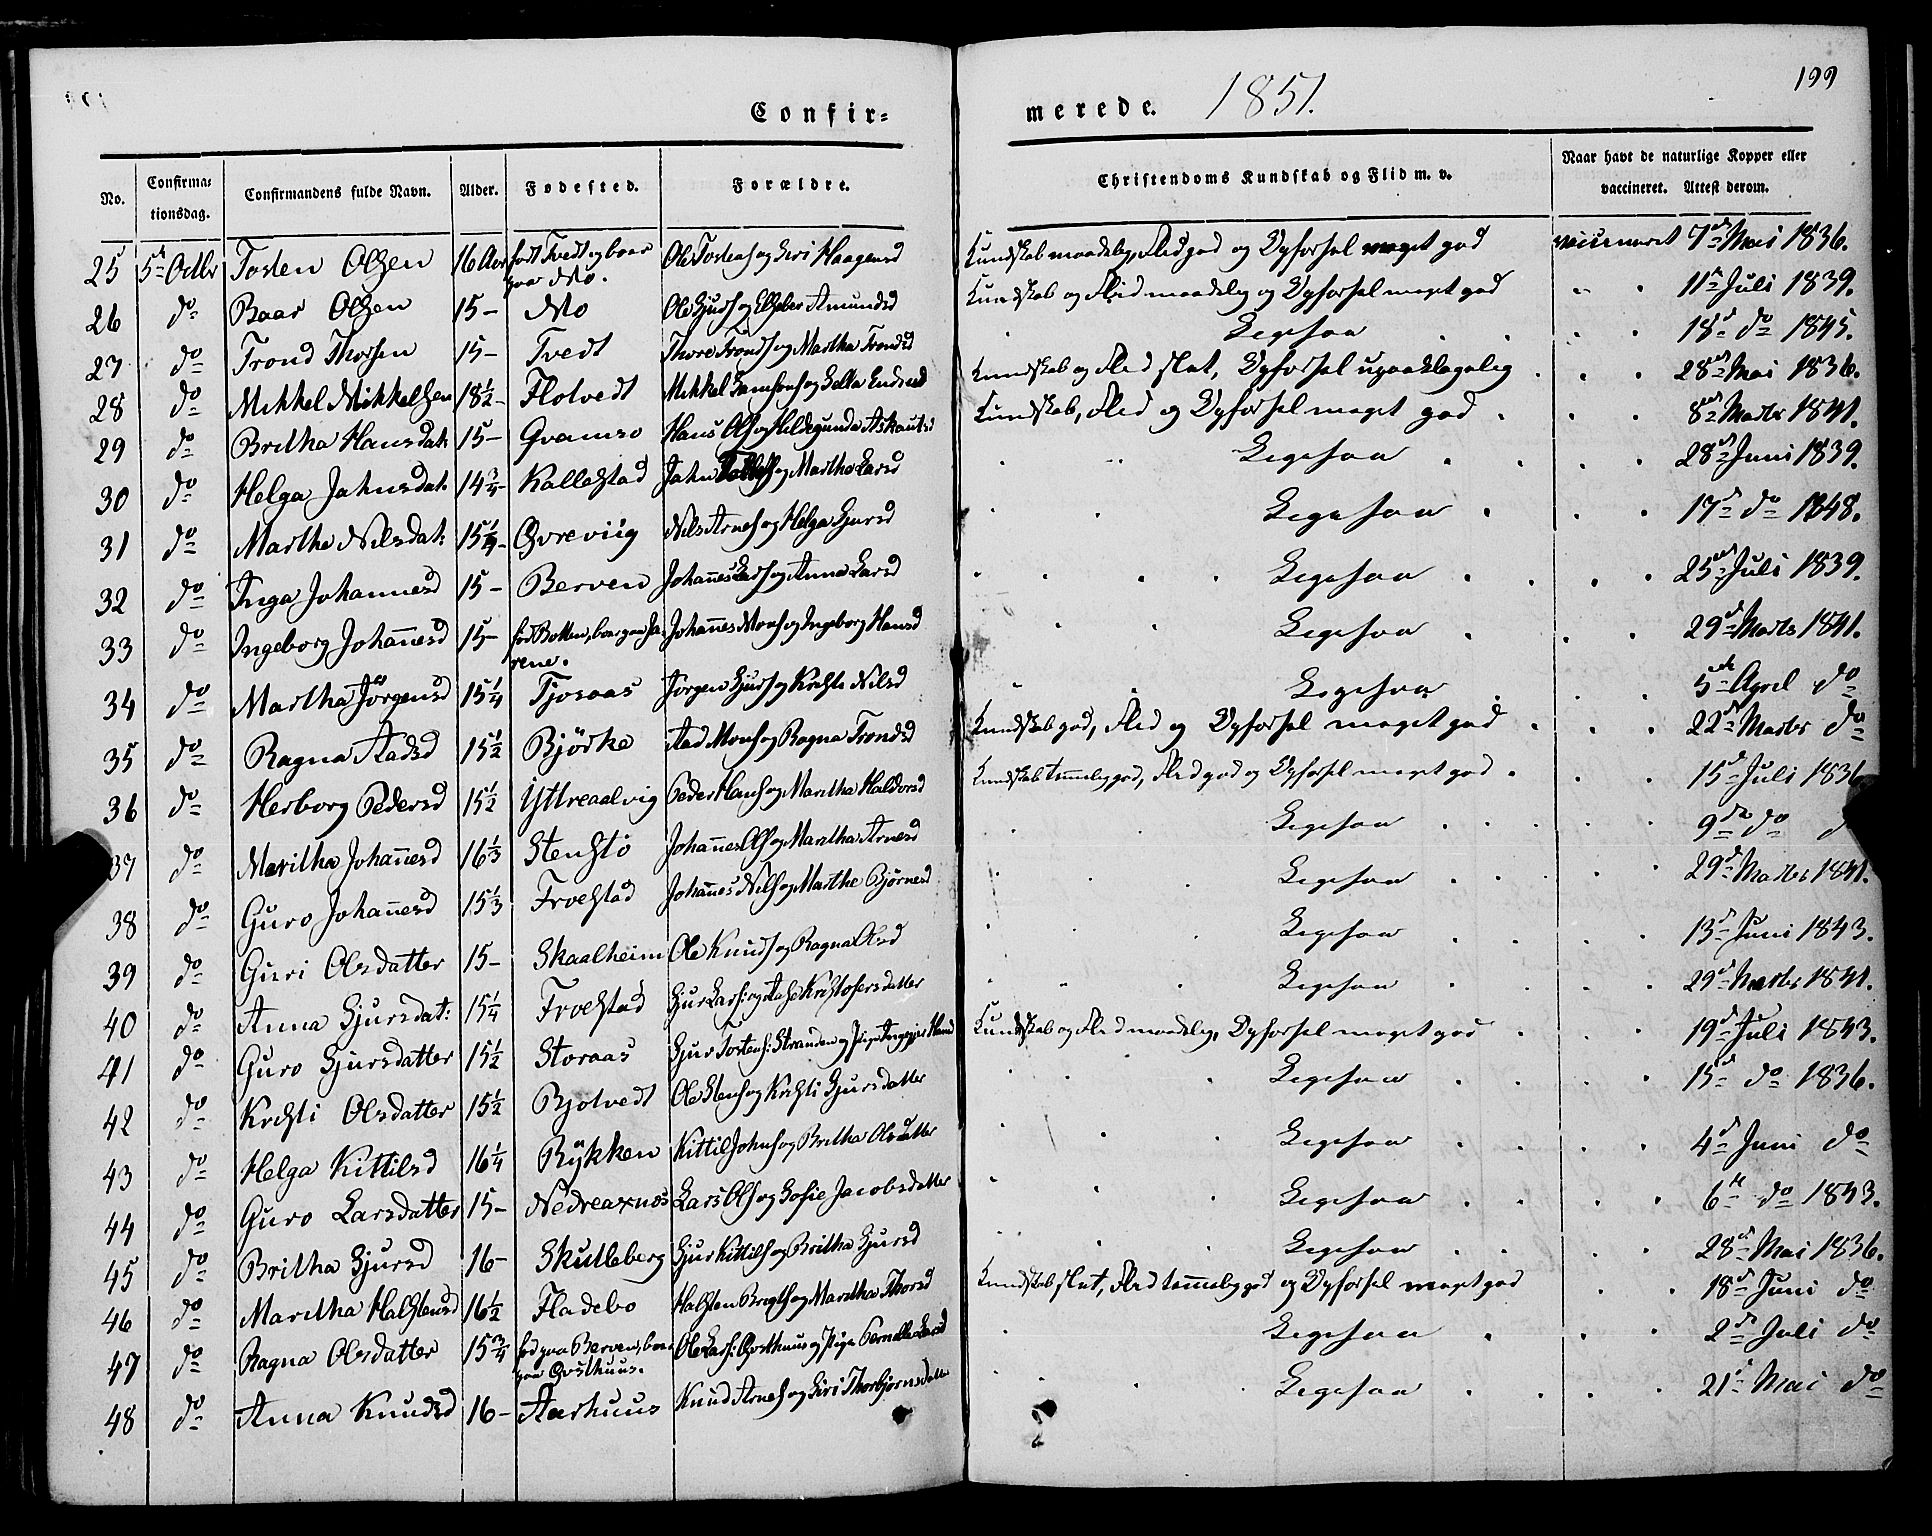 Confir-
merede. 1851.
199
No.
Confirma-
tionsdag.
Confirmandens fulde Navn.
Alder.
Fødested.
Forældre.
Christendoms Kundskab og Flid m. v.
Naar havt de naturlige Kopper eller
vaccineret. Attest derom.
25 5te Octbr Tosten Olsen 16 Aar født Tvedt og boer paa Mo. Ole Tostens og Siri Haagensd Kundskab maadelig, Flid god og Opførsel meget god vaccineret 7de Mai 1836.
26 do Baar Olsen 15- Mo Ole Sjurs og Elsebe Amundsd Kundskab og Flid maadelig og Opførsel meget god " 11te Juli 1839.
27 do Trond Thorsen 15- Tvedt Thore Tronds og Martha Trondsd Ligesaa 18d do 1845.
28 do Mikkel Mikkelsen 18½- Flotvedt Mikkel Samsons og Endresd Kundskab og Flid slet, Opførsel upaaklagelig 28de Mai 1836.
29 do Britha Hansdat: 15- Qvamso Hans Ols og Hildegunda Askautsd Kundskab, Flid og Opførsel meget god 8de Marts 1841.
30 do Helga Johnsdat: 14¾- Kallestad John og Martha Larsd Ligesaa 28d Juni 1839.
31 do Martha Nilsdat: 15¼- Øvreviig Nils Arnes og Helga Sjursd Ligesaa 17d do 1848.
32 do Inga Johannesd 15- Berven Johannes Lars og Anna Larsd Ligesaa 25de Juli 1839.
33 do Ingeborg Johannesd 15- fød Botten, boer paa Ja- rene. Johannes Mons og Ingeborg Hansd Ligesaa 29d Marts 1841.
34 do Martha Jørgensd 15¼ Tjoraas Jørgen Sjurs og Kristi Nilsd Ligesaa 5te April do
35 do Ragna Aadsd 15½ Bjørke Aad Mons og Ragna Trondsd Kundskab god, Flid og Opførsel meget god 22de Marts do
36 do Herborg Pedersd 15½ Yttreaalvig Peder Hans og Maritha Haldorsd Kundskab temmelig god, Flid god og Opførsel meget god 15d Juli 1836
37 do Maritha Johannesd 16⅓ Stenstø Johannes Ols og Maritha Arnesd Ligesaa 9de do
38 do Guro Johannesd 15⅓ Froestad Johannes Nils og Marthe Bjørnesd Ligesaa 29d Marts 1841.
39 do Guri Olsdatter 15- Skaalheim Ole Knuds og Ragna Olsd Ligesaa 13d Juni 1843.
40 do Anna Sjursdat: 15¼ Froestad Sjur Lars: og Aase Kristofersdatter Ligesaa 29d Marts 1841.
41 do Guro Sjursdatter 15½ Storaas Sjur Tostens: Stranden og Pige Kundskab og Flid maadelig, Opførsel meget god 19d Juli 1843.
42 do Kristi Olsdatter 15½ Bjotvedt Ole Stens og Kristi Sjursdatter Ligesaa 15d do 1836.
43 do Helga Kittilsd 16¼ Rykken Kittil Johns og Britha Olsdatter Ligesaa 4d Juni do
44 do Guro Larsdatter 15- Nedreaxnes Lars Ols og Sofie Jacobsdatter Ligesaa 6te do 1843.
45 do Britha Sjursd 16- Skutleberg Sjur Kittils og Britha Sjursd Ligesaa 28d Mai 1836.
46 do Maritha Halstensd 16½ Fladebo Halsten og Maritha Thorsd Kundskab slet, Flid temmelig god og Opførsel meget god 18d Juni do
47 do Ragna Olsdatter 15¾ fød paa Berven, boer paa Østhuus. Ole Lars: Østhuus og Pige Pernille Larsd Ligesaa 2d Juli do
48 do Anna Knudsd 16- Aarhuus Knud Arnes og Siri Thorbjørnsdatter Ligesaa 21d Mai do